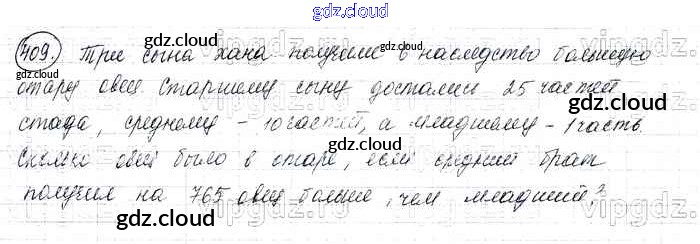 gdz.cloud
409. Три сына хана получили в наследство большую
отару овец. Старшему сыну достались 25 частей
стада, среднему - 10 частей, а младшему - 1 часть.
Сколько овец было в отаре, если средний брат
получил на 765 овец больше, чем младший?
gdz.cloud
gdz.cloud
gdz.cloud
gdz.cloud
gdz.cloud
gdz.cloud